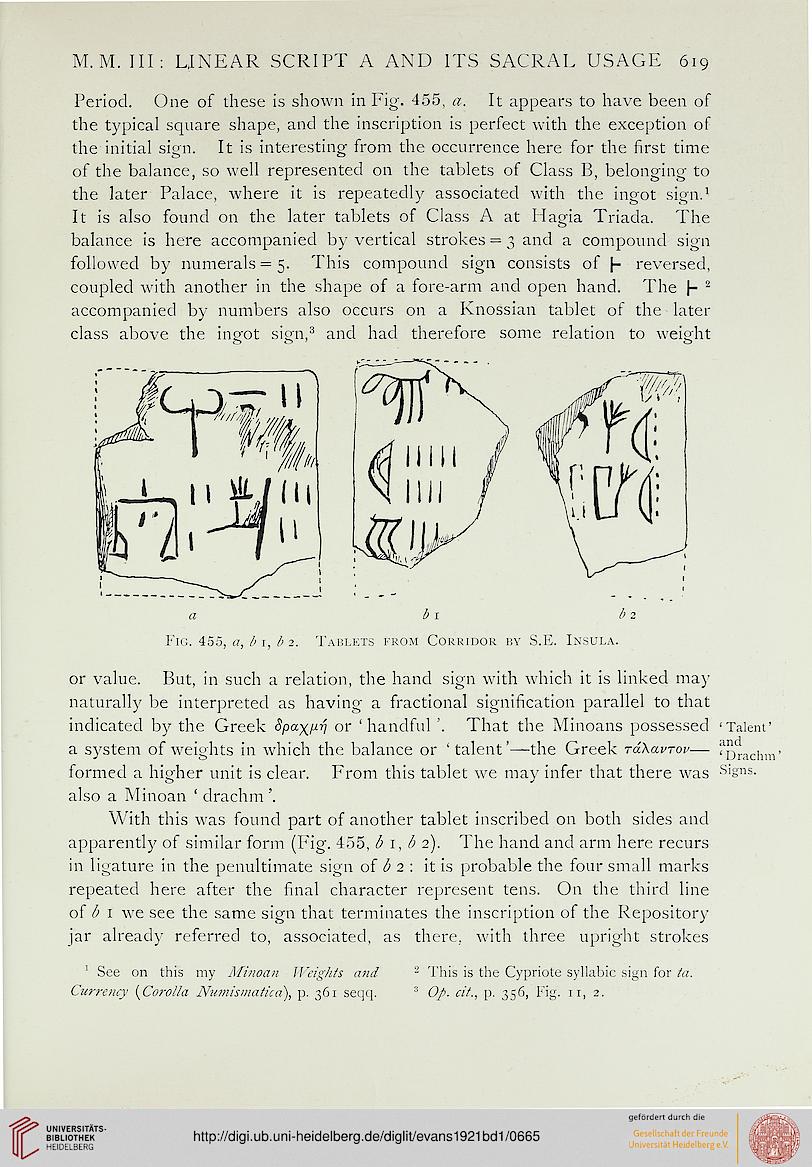 M. M. III: LINEAR SCRIPT A AND ITS SACRAL USAGE 619
Period. One of these is shown in Fig. 455, a. It appears to have been of
the typical square shape, and the inscription is perfect with the exception of
the initial sign. It is interesting from the occurrence here for the first time
of the balance, so well represented on the tablets of Class B, belonging to
the later Palace, where it is repeatedly associated with the ingot sign.¹
It is also found on the later tablets of Class A at Hagia Triada. The
balance is here accompanied by vertical strokes = 3 and a compound sign
followed by numerals = 5. This compound sign consists of 𐠭 reversed,
coupled with another in the shape of a fore-arm and open hand. The 𐠭 ²
accompanied by numbers also occurs on a Knossian tablet of the later
class above the ingot sign,³ and had therefore some relation to weight
a b 1 b 2
Fig. 455, a, b 1, b 2. Tablets from Corridor by S.E. Insula.
or value. But, in such a relation, the hand sign with which it is linked may
naturally be interpreted as having a fractional signification parallel to that
indicated by the Greek δραχμή or ‘handful’. That the Minoans possessed
a system of weights in which the balance or ‘talent’—the Greek τάλαντον—
formed a higher unit is clear. From this tablet we may infer that there was
also a Minoan ‘drachm’.
‘Talent’
and
‘Drachm’
Signs.
With this was found part of another tablet inscribed on both sides and
apparently of similar form (Fig. 455, b 1, b 2). The hand and arm here recurs
in ligature in the penultimate sign of b 2: it is probable the four small marks
repeated here after the final character represent tens. On the third line
of b 1 we see the same sign that terminates the inscription of the Repository
jar already referred to, associated, as there, with three upright strokes
¹ See on this my Minoan Weights and
Currency (Corolla Numismatica), p. 361 seqq.
² This is the Cypriote syllabic sign for ta.
³ Op. cit., p. 356, Fig. 11, 2.
UNIVERSITÄTS-
BIBLIOTHEK
HEIDELBERG
http://digi.ub.uni-heidelberg.de/diglit/evans1921bd1/0665
gefördert durch die
Gesellschaft der Freunde
Universität Heidelberg e.V.